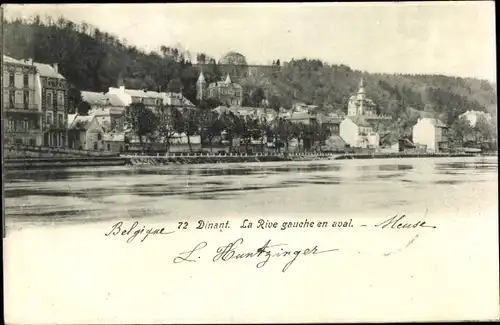 72 Dinant. La Rive gauche en aval.
Belgique - Meuse
L. Huntzinger